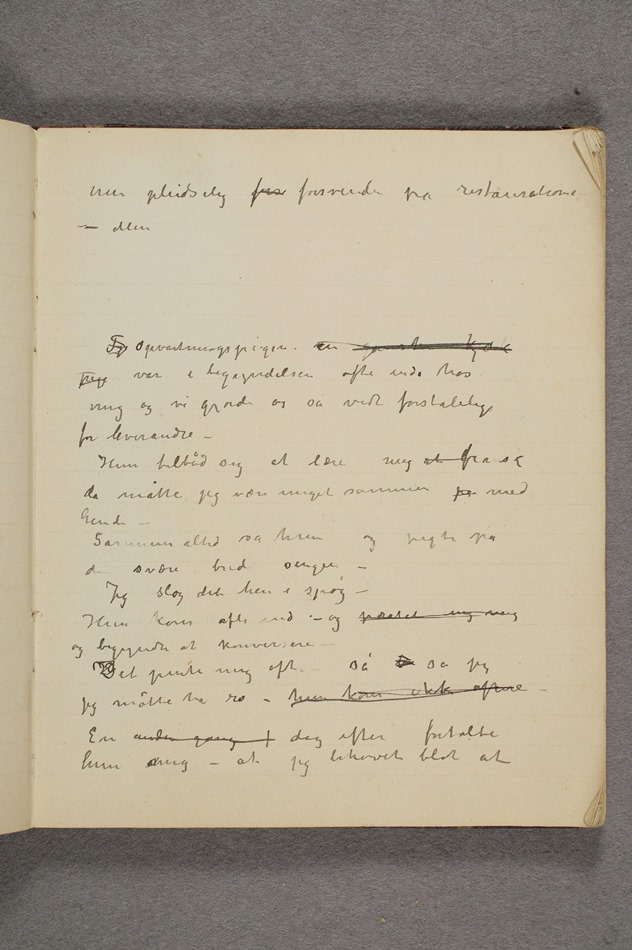 men pludselig fors forsvende på restaurationen
— eller
Fr opvartningspigen. en ganske kjæk
pige var i begyndelsen ofte inde hos
mig og vi gjorde os så vidt forståelig
for hverandre –
Hun tilbød sig at lære mig at fransk
da måtte jeg være meget sammen på med
hende –
Sammen altid sa hun og pegte på
d svære bred sengen –
Jeg slog det hen i spøg –
Hun kom ofte ind – og
og begyndte at konversere –
Det pinte mig ofte – så sa jeg
jeg måtte ha ro – hun kom ikke oftere –
En anden gang dag efter fortalte
hun mig – at jeg behøvet blot at